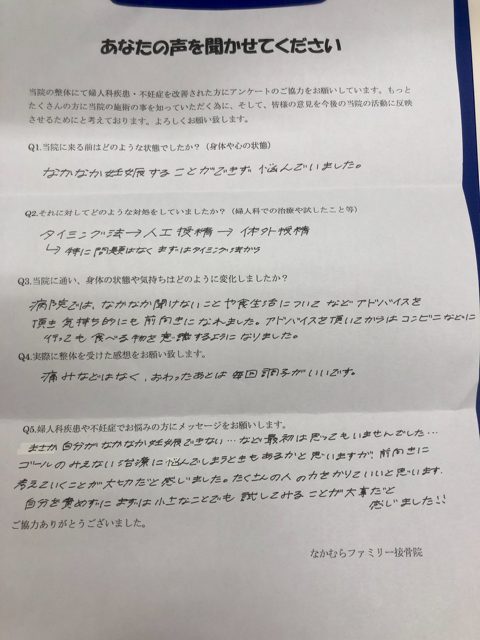 あなたの声を聞かせてください
当院の整体にて婦人科疾患・不妊症を改善された方にアンケートのご協力をお願いしています。もっと
たくさんの方に当院の施術の事を知っていただく為に、そして、皆様の意見を今後の当院の活動に反映
させるためにと考えております。よろしくお願い致します。
Q1.当院に来る前はどのような状態でしたか？（身体や心の状態）
なかなか妊娠することができず 悩んでいました。
Q2.それに対してどのような対処をしていましたか？（婦人科での治療や試したこと等）
タイミング法→人工授精→体外授精
↳特に問題はなく まずはタイミング法から
Q3.当院に通い、身体の状態や気持ちはどのように変化しましたか？
病院では、なかなか聞けないことや食生活について などアドバイスを
頂き 気持ち的にも前向きになれました。アドバイスを頂いてからはコンビニなどに
行っても 食べる物を意識するようになりました。
Q4.実際に整体を受けた感想をお願い致します。
痛みなどはなく、おわったあとは 毎回調子がいいです。
Q5.婦人科疾患や不妊症でお悩みの方にメッセージをお願いします。
まさか 自分がなかなか妊娠できない…など最初は思ってもいませんでした…
ゴールのみえない治療に悩んでしまうときもあるかと思いますが、前向きに
考えていくことが大切だと感じました。たくさんの人の力をかりていいと思います.
自分を責めずに まずは小さなことでも 試してみることが大事だと
感じました!!
ご協力ありがとうございました。
なかむらファミリー接骨院